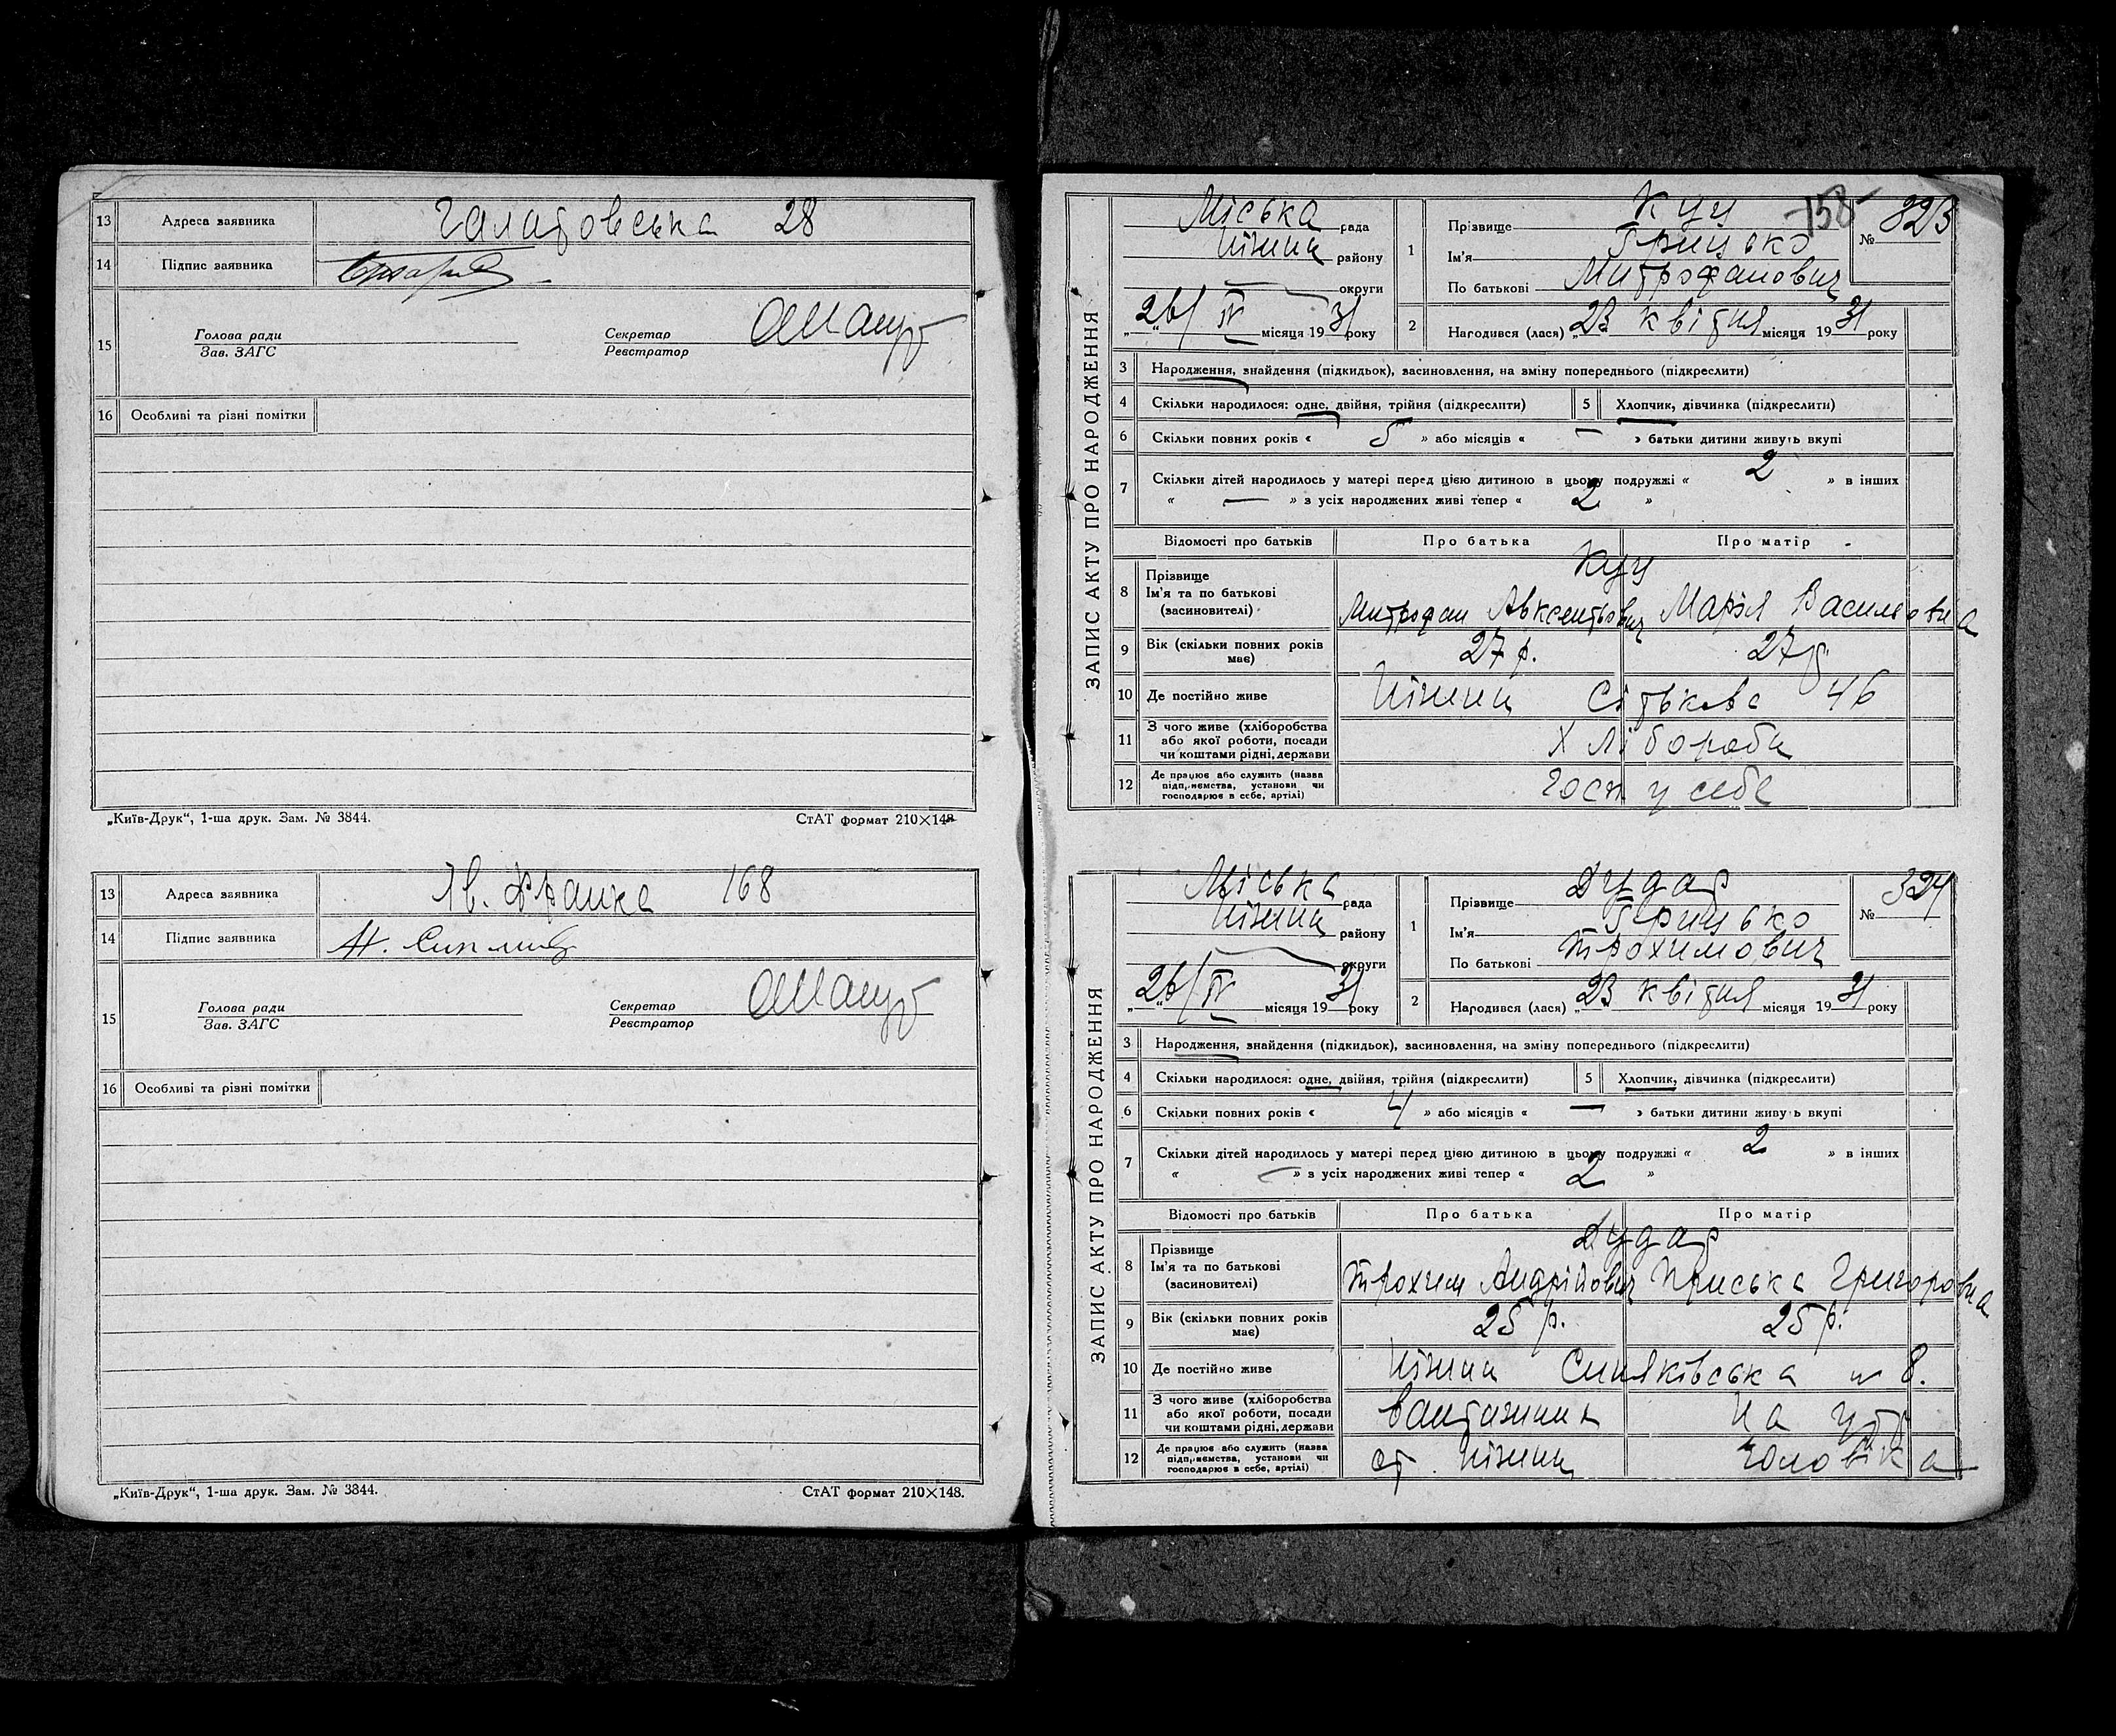 13 Адреса заявника Галатовська 28
14 Підпис заявника
15 Голова ради Секретар
Зав. ЗАГС Реєстратор
16 Особливі та різні помітки
„Київ-Друк“, 1-ша друк. Зам. № 3844. СтАТ формат 210×148
13 Адреса заявника Ів. Франка 168
14 Підпис заявника
15 Голова ради Секретар
Зав. ЗАГС Реєстратор
16 Особливі та різні помітки
„Київ-Друк“, 1-ша друк. Зам. № 3844. СтАТ формат 210×148.
158
ЗАПИС АКТУ ПРО НАРОДЖЕННЯ
Міська рада
Ніжин району
округи
„26/IV місяця 1931 року
1 Прізвище Куц
Ім'я Грицько
По батькові Митрофанович
№ 323
2 Народився (лася) „23 квітня місяця 1931 року
3 Народження, знайдення (підкидьок), васиновлення, на зміну попереднього (підкреслити)
4 Скільки народилося: одне, двійня, трійня (підкреслити) 5 Хлопчик, дівчинка (підкреслити)
6 Скільки повних років « 5 » або місяців « — » батьки дитини живуть вкупі
7 Скільки дітей народилось у матері перед цією дитиною в цьому подружжі « 2 » в інших
« — » з усіх народжених живі тепер « 2 »
Відомості про батьків Про батька Про матір
8 Прізвище Куц
Ім'я та по батькові
(васиновителі) Митрофан Авксентьович Марія Васильовна
9 Вік (скільки повних років має) 27 р. 27 р
10 Де постійно живе Ніжин 46
11 З чого живе (хліборобства
або якої роботи, посади
чи коштами рідні, держави Хлібороби
12 Де працює або служить (назва
підприємства, установи чи
господарює в себе, артілі) Госп у себе
ЗАПИС АКТУ ПРО НАРОДЖЕННЯ
Міська рада
Ніжин району
округи
„26/IV місяця 1931 року
1 Прізвище Дудар
Ім'я Грицько
По батькові Трохимович
№ 324
2 Народився (лася) „23 квітня місяця 1931 року
3 Народження, знайдення (підкидьок), васиновлення, на зміну попереднього (підкреслити)
4 Скільки народилось: одне, двійня, трійня (підкреслити) 5 Хлопчик, дівчинка (підкреслити)
6 Скільки повних років « 4 » або місяців « — » батьки дитини живуть вкупі
7 Скільки дітей народилось у матері перед цією дитиною в цьому подружжі « 2 » в інших
« — » з усіх народжених живі тепер « 2 »
Відомості про батьків Про батька Про матір
8 Прізвище Дудар
Ім'я та по батькові
(васиновителі) Трохим Андрійович Приська Григоровна
9 Вік (скільки повних років має) 25 р. 25 р.
10 Де постійно живе Ніжин Синяківська № 8.
11 З чого живе (хліборобства
або якої роботи, посади
чи коштами рідні, держави вантажник на утр
12 Де працює або служить (назва
підприємства, установи чи
господарює в себе, артілі) ст. Ніжин чоловіка